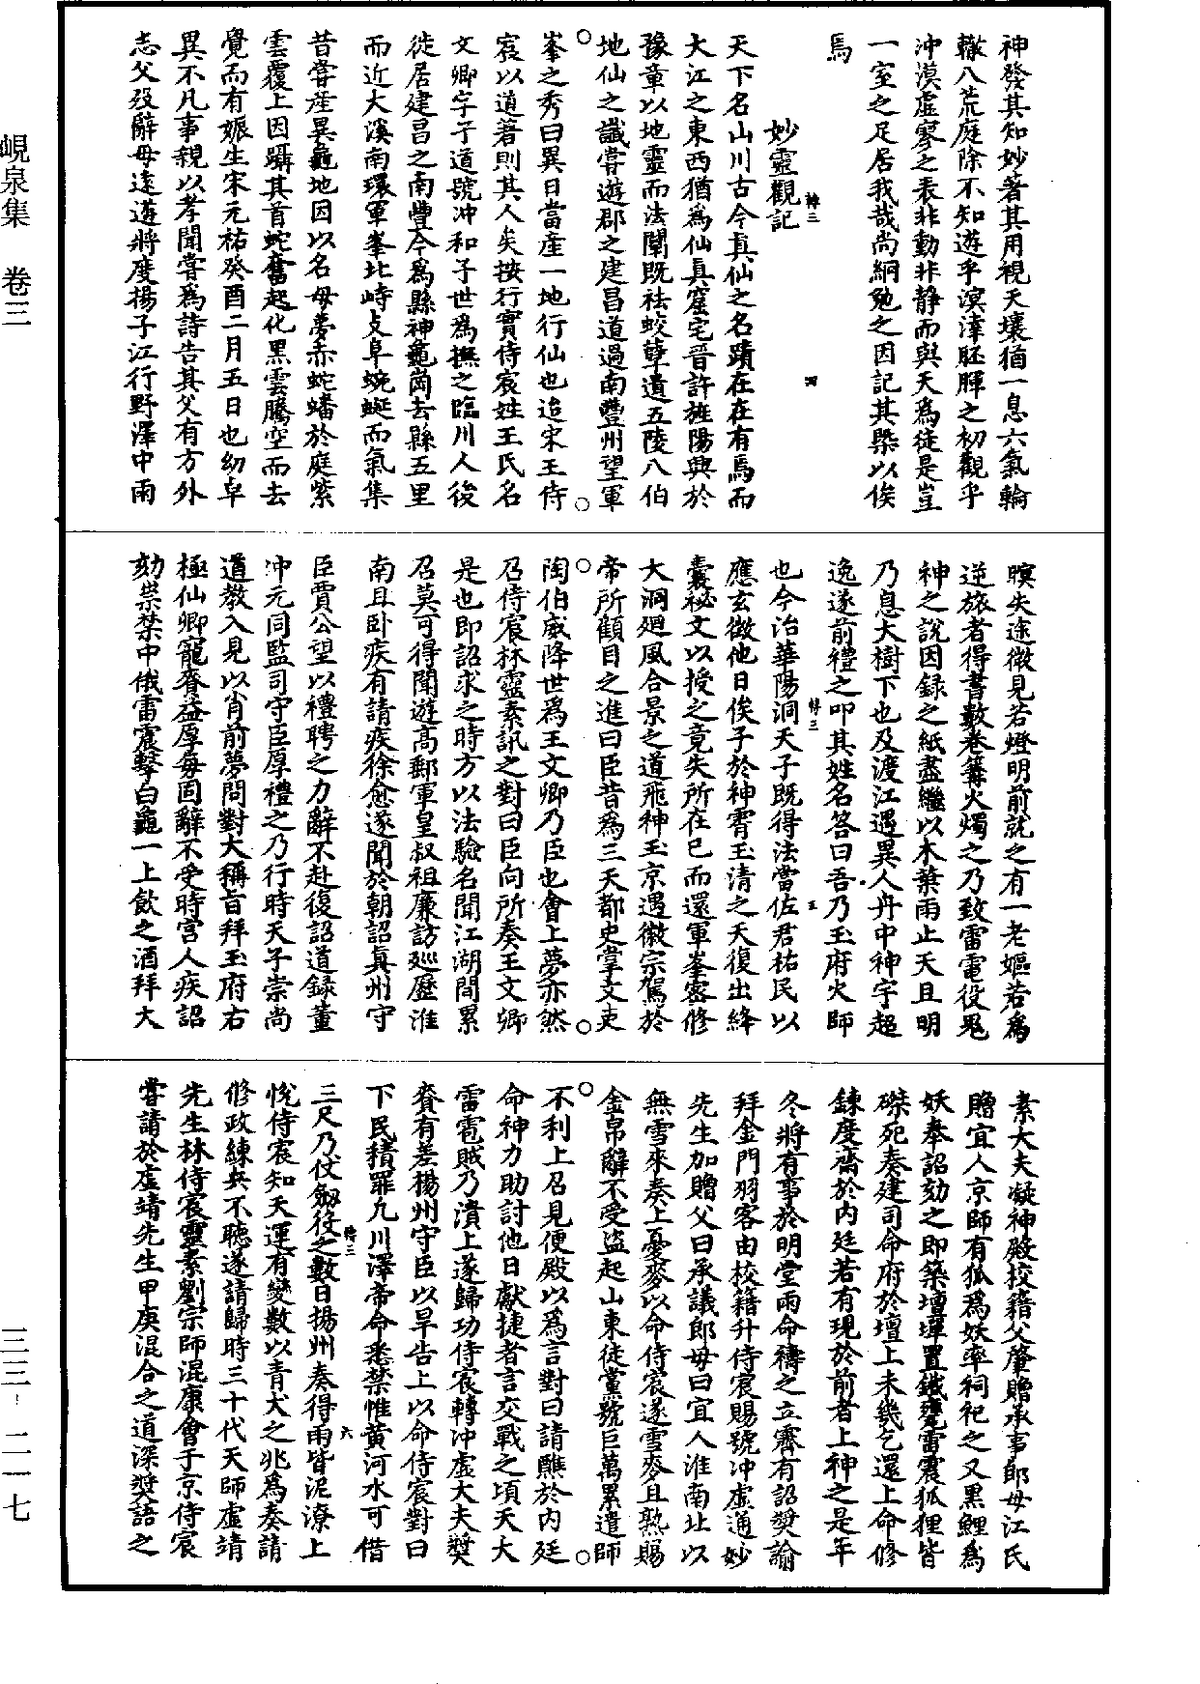 神發其知妙著其用視天壤猶一息六氣輪
轍八荒庭除不知遊乎溟涬胚腪之初觀乎
沖漠虛寥之表非動非靜而與天為徒是豈
一室之足居我哉尚綱勉之因記其槩以俟
焉
妙靈觀記
天下名山川古今真仙之名蹟在在有焉而
大江之東西猶為仙真窟宅晉許旌陽興於
豫章以地靈而法闡既祛蛟孽遺五陵八伯
地仙之讖嘗遊郡之建昌道過南豐州望軍
峯之秀曰異日當產一地行仙也迨宋王侍
宸以道著則其人矣按行實侍宸姓王氏名
文卿字予道號沖和子世為撫之臨川人後
徙居建昌之南豐今為縣神龜崗去縣五里
而近大溪南環軍峯北峙攴阜蜿蜒而氣集
昔嘗產異龜地因以名母夢赤蛇蟠於庭紫
雲覆上因躡其首蛇奮起化黑雲騰空而去
覺而有娠生宋元祐癸酉二月五日也幼卓
異不凡事親以孝聞嘗為詩告其父有方外
志父歿辭母遠遊將度揚子江行野澤中雨
暝失途微見若燈明前就之有一老嫗若為
逆旅者得書數卷篝火燭之乃致雷電役鬼
神之說因録之紙盡繼以木葉雨止天且明
乃息大樹下也及渡江遇異人舟中神宇超
逸遂前禮之叩其姓名答曰吾乃玉府火師
也今治華陽洞天子既得法當佐君祐民以
應玄徵他日俟子於神霄玉清之天復出絳
囊祕文以授之竟失所在已而還軍峯密修
大洞廻風合景之道飛神玉京遇徽宗駕於
帝所顧目之進曰臣昔為三天都史掌文吏
陶伯威降世為王文卿乃臣也會上夢亦然
召侍宸林靈素訊之對曰臣向所奏王文卿
是也即詔求之時方以法驗名聞江湖間累
召莫可得聞遊高郵軍皇叔祖廉訪廵歷淮
南且卧疾有請疾徐愈遂聞於朝詔真州守
臣賈公望以禮聘之力辭不赴復詔道録董
沖元同監司守臣厚禮之乃行時天子崇尚
道教入見以肖前夢問對大稱旨拜玉府右
極仙卿寵賚益厚每固辭不受時宮人疾詔
劾祟禁中俄雷震擊白龜一上飲之酒拜大
素大夫凝神殿挍籍父肇贈承事郎母江氏
贈宜人京師有狐為妖率祠祀之又黑鯉為
妖奉詔劾之即築壇墠置鐵甕雷震狐狸皆
磔死奏建司命府於壇上未幾乞還上命修
鍊度齋於内廷若有現於前者上神之是年
冬將有事於明堂雨命禱之立霽有詔奨諭
拜金門羽客由校籍升侍宸賜號沖虛通妙
先生加贈父曰承議郎母曰宜人淮南北以
無雪來奏上憂麥以命侍宸遂雪麥且熟賜
金帛辭不受盜起山東徒黨號巨萬累遣師
不利上召見便殿以為言對曰請醮於内廷
命神力助討他日獻捷者言交戰之頃天大
雷雹賊乃潰上遂歸功侍宸轉沖虛大夫奨
賚有差揚州守臣以旱告上以命侍宸對曰
下民積罪九川澤帝命悉禁惟黄河水可借
三尺乃仗劔役之數日揚州奏得雨皆泥潦上
悅侍宸知天運有變數以青犬之兆為奏請
修政練兵不聽遂請歸時三十代天師虛靖
先生林侍宸靈素劉宗師混康會于京侍宸
嘗請於虛靖先生甲庚混合之道深奨語之
轉三
四
轉三
五
轉三
六
峴泉集 卷三
三三-二一七